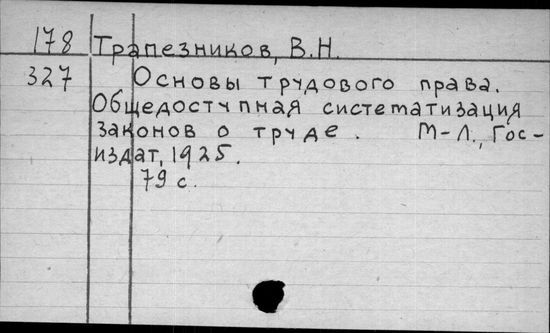 178 Трапезников, В.Н.
327 Основы трудового права.
Общедоступная систематизация
законов о труде. М-Л., Гос-
издат, 1925.
79 с.